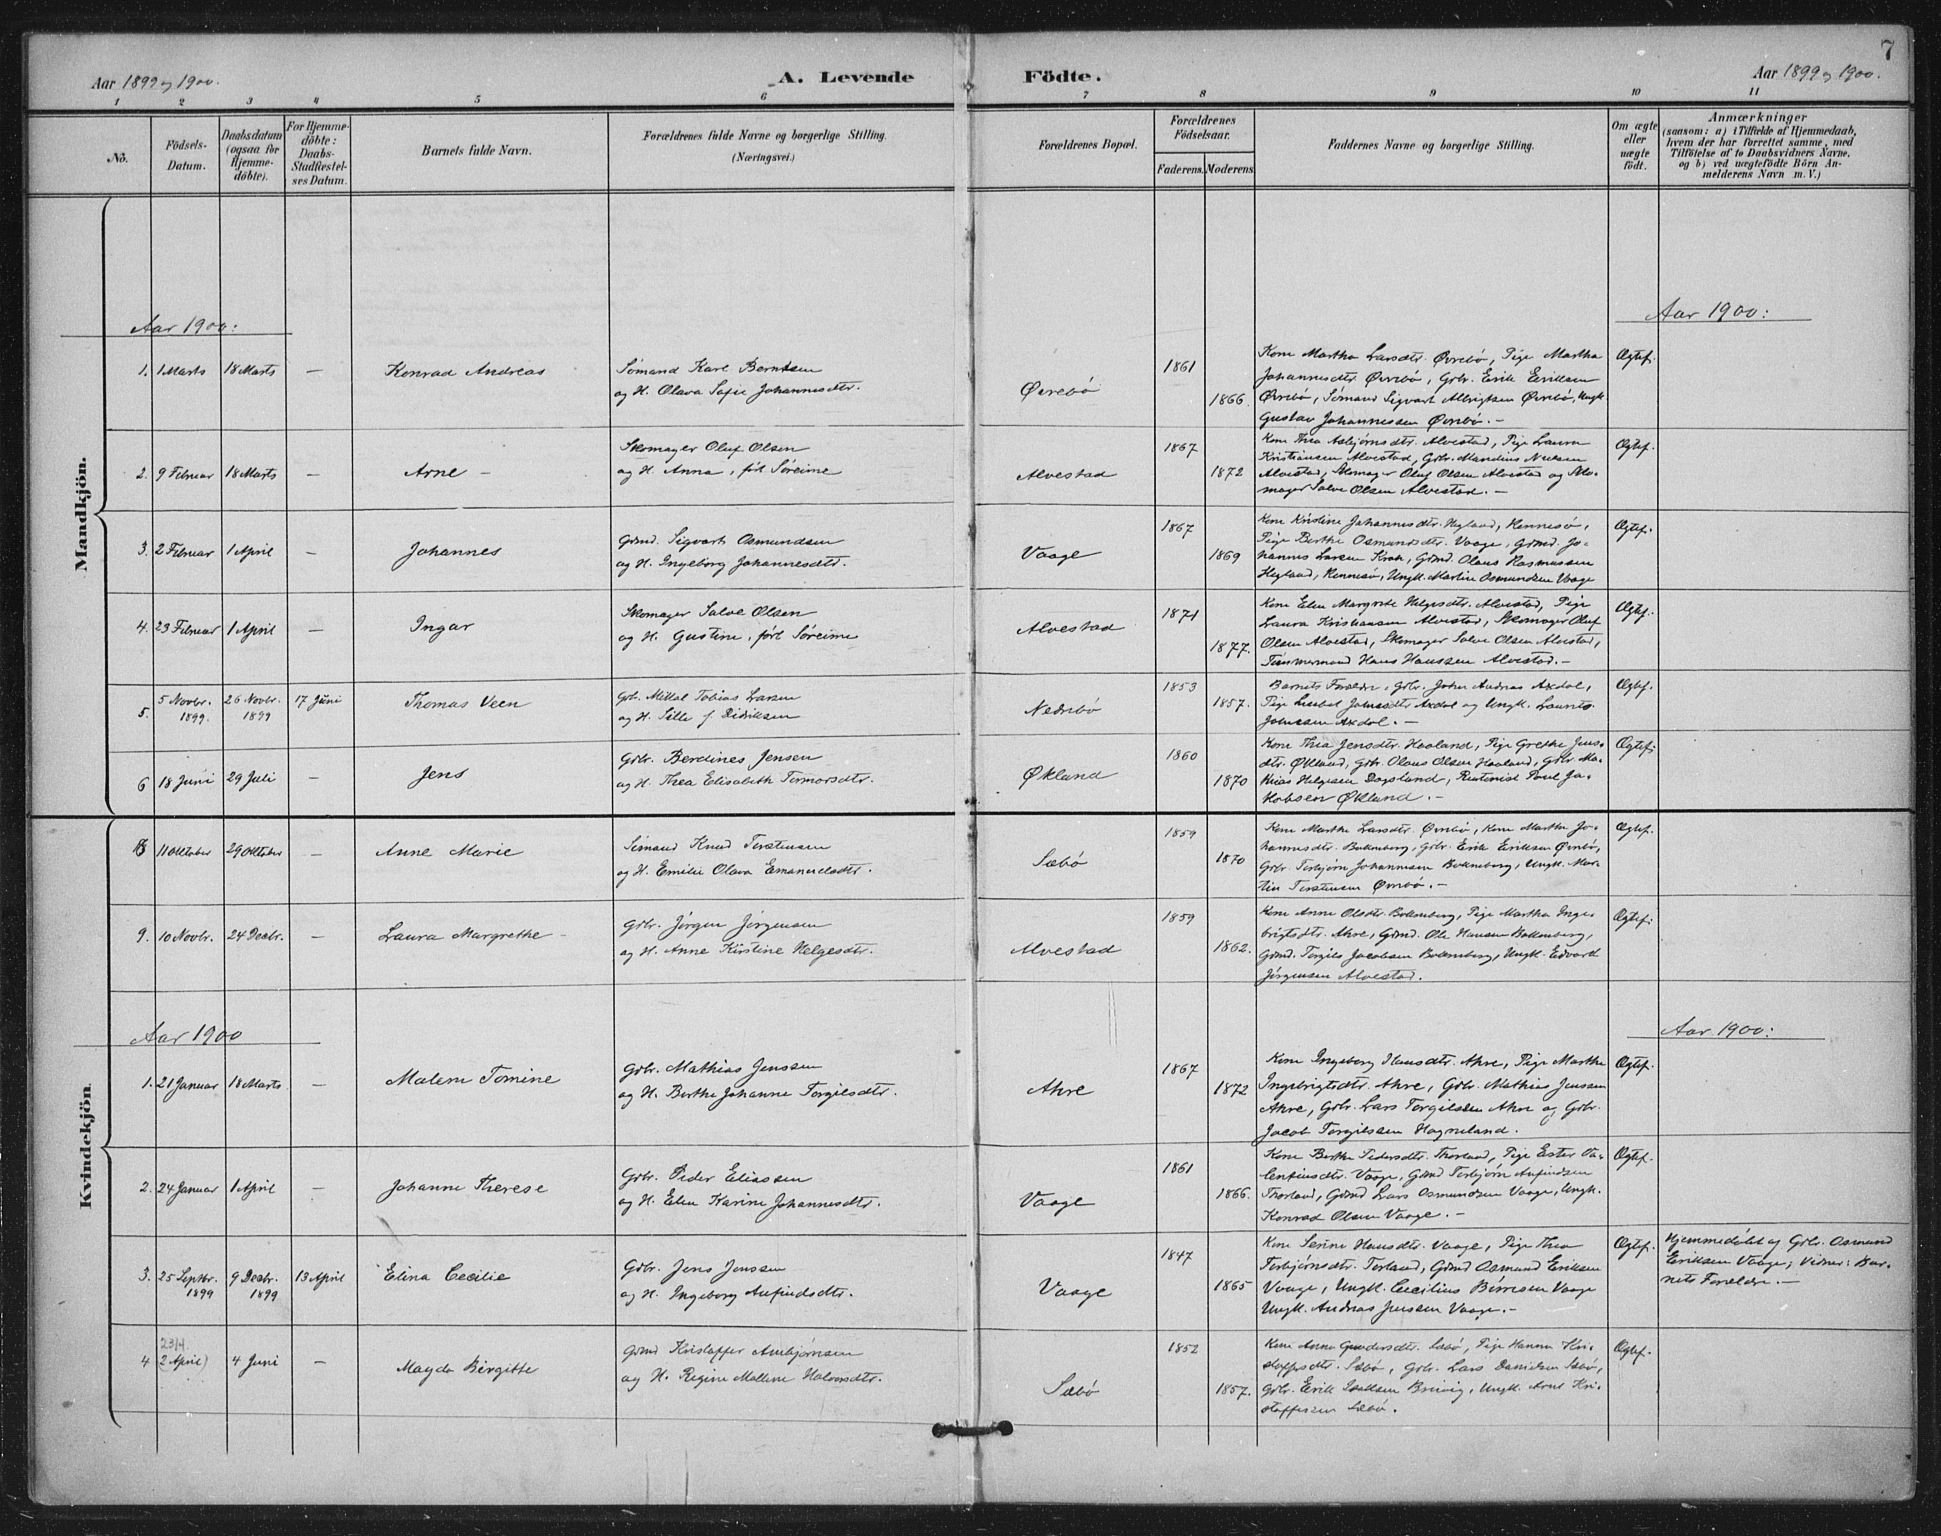 7
Aar 1899 og 1900.
A. Levende Födte.
Aar 1899 og 1900.
1 2 3 4 5 6 7 8 9 10 11
No.
Födsels-
Datum.
Daabsdatum
(ogsaa for
Hjemme-
döbte).
For Hjemme-
döbte:
Daabs-
Stadfæstel-
ses Datum.
Barnets fulde Navn.
Forældrenes fulde Navne og borgerlige Stilling.
(Næringsvei.)
Forældrenes Bopæl.
Forældrenes
Födselsaar.
Faderens. Moderens.
Faddernes Navne og borgerlige Stilling.
Om ægte
eller
uægte
födt.
Anmærkninger
(saasom: a) i Tilfælde af Hjemmedaab,
hvem der har forrettet samme, med
Tilföielse af to Daabsvidners Navne,
og b) ved uægtefödte Börn An-
melderens Navn m. V.)
Mandkjön.
Aar 1900:
Aar 1900:
1. 1 Marts 18 Marts — Konrad Andreas
Sömand Karl Berntsen
og H. Olava Sofie Johannesdtr.
Øvrebö
1861
1866.
Kone Martha Larsdtr. Øvrebö, Pige Martha
Johannesdtr. Øvrebö, Gbr. Erik Eriksen
Øvrebö, Sömand Sigvart Albrigtsen Øvrebö, Ungk.
Gustav Johannessen Øvrebö. —
Ægtef.
2. 9 Februar 18 Marts — Arne —
Skomager Oluf Olsen
og H. Anna, föt Söreime
Alvestad
1867
1872
Kone Thea Asbjörnsdtr. Alvestad, Pige Laura
Kristiansen Alvestad, Gbr. Mandius Nielsen
Alvestad, Skomager Oluf Olsen Alvestad og Sko-
mager Salve Olsen Alvestad. —
Ægtef.
3. 2 Februar 1 April — Johannes
Gdmd. Sigvart Osmundsen
og H. Ingeborg Johannesdtr.
Vaage
1867
1869
Kone Kristine Johannesdtr. Hegland, Rennesö,
Pige Berthe Osmundsdtr. Vaage, Gdmd. Jo-
hannes Larsen Krok, Gdmd. Olaus Rasmussen
Hegland, Rennesö, Ungk. Martin Osmundsen Vaage
Ægtef.
4. 23 Februar 1 April — Ingar
Skomager Salve Olsen
og H. Gustine, födt Söreime
Alvestad
1871
1877.
Kone Elen Margrete Helgesdtr. Alvestad, Pige
Laura Kristiansen Alvestad, Skomager Oluf
Olsen Alvestad, Skomager Salve Olsen Alvestad,
Tömmermand Hans Hanssen Alvestad. —
Ægtef.
5. 5 Novbr. 1899. 26 Novbr. 1899 17 Juni Thomas Veen
Gbr. Mikkal Tobias Larsen
og H. Sille f. Didriksen
Nedrebö
1853
1857.
Barnets Forældre, Gbr. John Andreas Axdal,
Pige Lisabet Johnsdtr. Axdal og Ungk. Laurits
Johnsen Axdal. —
Ægtef.
6 18 Juni 29 Juli — Jens
Gbr. Berdines Jensen
og H. Thea Elisabeth Tormorsdtr.
Økland
1860
1870
Kone Thea Jensdtr. Haaland, Pige Grethe Jens-
dtr. Økland, Gbr. Olaus Olsen Haaland, Gbr. Ma-
kias Helgesen Dagsland, Rentenist Poul Ja-
kobsen Økland. —
Ægtef.
Kvindekjön.
8 11 Oktober 29 Oktober — Anne Marie
Sömand Knud Torstensen
og H. Emilie Olava Emanuelsdtr.
Sæbö
1859
1870
Kone Martha Larsdtr. Øvrebö, Kone Martha Jo-
hannesdtr. Bokneberg, Gbr. Erik Eriksen Øvrebö,
Gbr. Torbjörn Johannesen Bokneberg, Ungk. Mar-
tin Torstensen Øvrebö. —
Ægtef.
9. 10 Novbr. 24 Decbr. — Laura Margrethe
Gbr. Jörgen Jörgensen
og H. Anne Kirstine Helgesdtr.
Alvestad
1859
1862.
Kone Anne Olsdtr. Bokneberg, Pige Martha Inge-
brigtsdtr. Ahre, Gdmd. Ole Hansen Bokneberg,
Gdmd. Torgils Jacobsen Bokneberg, Ungk. Edvart
Jörgensen Alvestad.
Ægtef.
Aar 1900
Aar 1900:
1. 21 Januar 18 Marts — Malene Tomine
Gbr. Mathias Jenssen
og H. Berthe Johanne Torgilsdtr.
Ahre
1867
1872
Kone Ingeborg Hansdtr. Ahre, Pige Martha
Ingebrigtsdtr. Ahre, Gbr. Mathias Jenssen
Ahre, Gbr. Lars Torgilssen Ahre og Gbr.
Jacob Torgilssen Hogneland.
Ægtef.
2. 24 Januar 1 April — Johanne Therese
Gbr. Peder Eliassen
og H. Elen Karine Johannesdtr.
Vaage
1861
1866.
Kone Berthe Pedersdtr. Thorland, Pige Ester Va-
lentinsdtr. Vaage, Gdmd Torbjörn Anfindsen
Thorland, Gdmd Lars Osmundsen Vaage, Ungk.
Konrad Olsen Vaage. —
Ægtef.
3. 25 Septbr. 1899 9 Decbr. 1899 13 April Elina Cecilie
Gbr. Jens Jenssen
og H. Ingeborg Anfindsdtr.
Vaage
1847
1865
Kone Serine Hansdtr. Vaage, Pige Thea
Torbjörnsdtr. Torland, Gdmd Osmund Eriksen
Vaage, Ungk. Cecilius Börresen Vaage
Ungk. Andreas Jenssen Vaage. —
Ægtef.
Hjemmedöbt af Gbr. Osmund
Eriksen Vaage; Vidner: Bar-
nets Forældre. —
23/4
4 2 April) 4 Juni — Magda Birgitte
Gdmd Kristoffer Aanbjörnsen
og H. Regine Mallene Halvorsdtr.
Sæbö
1852
1857.
Kone Anne Gundersdtr. Sæbö, Pige Hanna Kri-
stoffersdtr. Sæbö, Gbr. Lars Danielsen Sæbö,
Gbr. Erik Isaksen Breivig, Ungk. Arne Kri-
stoffersen Sæbö.
Ægtef.